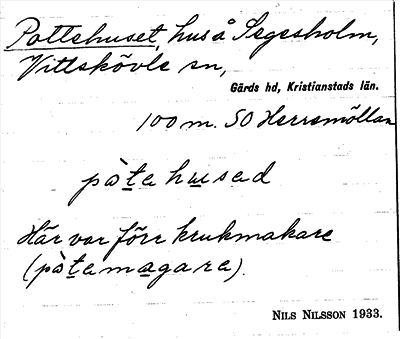 Pottehuset, hus å Segesholm,
Vittskövle sn,
Gärds hd, Kristianstads län.
100 m. SO Herrsmöllan
pòtahused
Här var förr krukmakare
(pòtamagara).
NILS NILSSON 1933.